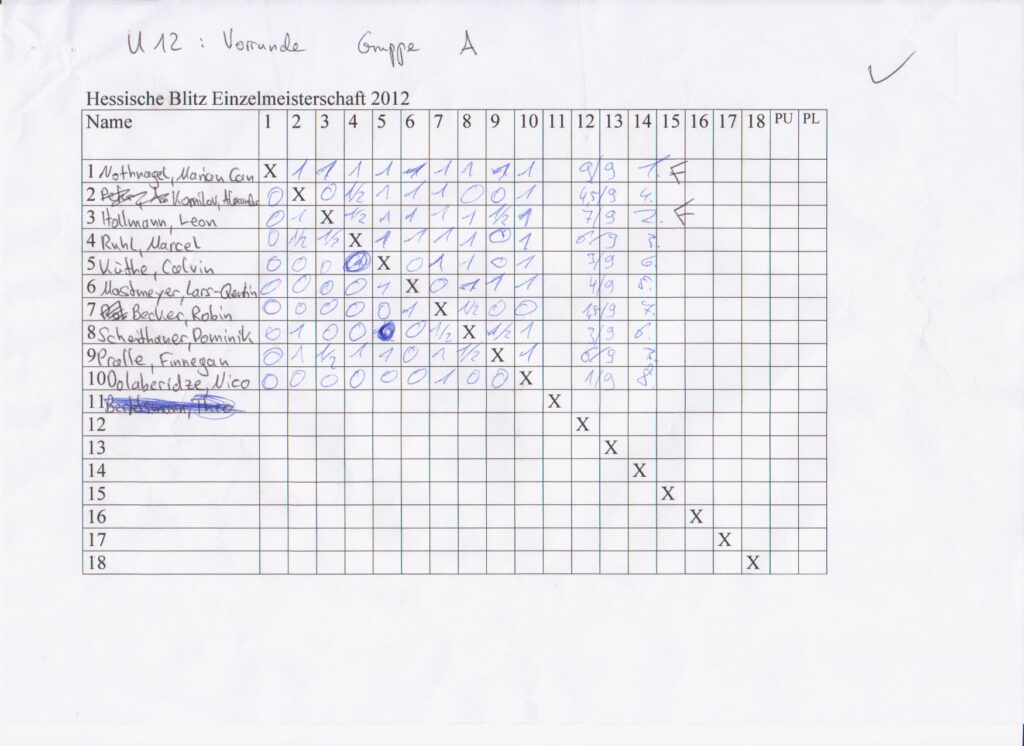 U12 : Vorrunde Gruppe A
Hessische Blitz Einzelmeisterschaft 2012
Name 1 2 3 4 5 6 7 8 9 10 11 12 13 14 15 16 17 18 PU PL
1 Nothnagel, Marian Can X 1 1 1 1 1 1 1 1 1 9/9 1. F
2 Kamilov, 0 X 0 1/2 1 1 1 0 0 1 4,5/9 4.
3 Hollmann, Leon 0 1 X 1/2 1 1 1 1 1/2 1 7/9 2. F
4 Ruhl, Marcel 0 1/2 1/2 X 1 1 1 1 0 1 6/9 3.
5 Käthe, Calvin 0 0 0 0 X 0 1 1 0 1 3/9 6.
6 Mastmeyer, Lars-Quentin 0 0 0 0 1 X 0 1 1 1 4/9 5.
7 Becker, Robin 0 0 0 0 0 1 X 1/2 0 0 1,5/9 7.
8 Scheithauer, Dominik 0 1 0 0 0 0 1/2 X 1/2 1 3/9 6.
9 Pralle, Finnegan 0 1 1/2 1 1 0 1 1/2 X 1 6/9 3.
10 Dolaberidze, Nico 0 0 0 0 0 0 1 0 0 X 1/9 8.
11 X
12 X
13 X
14 X
15 X
16 X
17 X
18 X